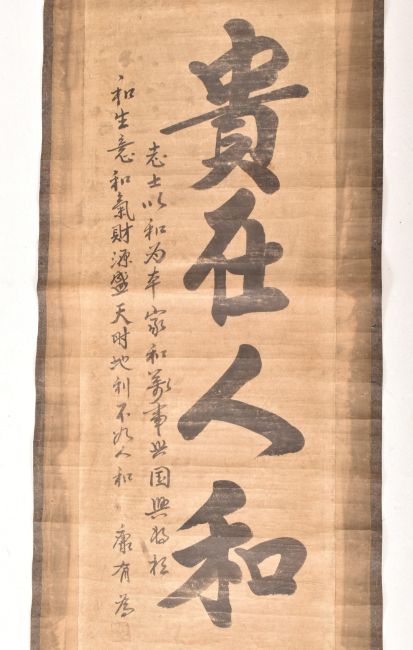 貴在人和
志士以和为本家和萬事兴国興将相
和生意和氣財源盛天时地利不如人和 康有為